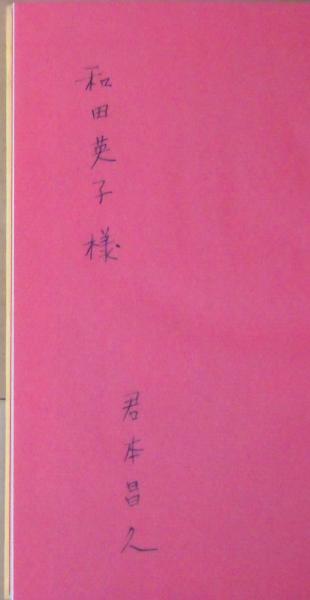 和田英子様
君本昌久